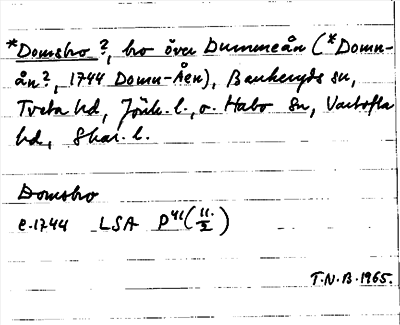 *Domsbro?, bro över Dummeån (*Domn-
ån?, 1744 Domn-Åen), Bankeryds sn,
Tveta hd, Jönk. l., o. Habo sn, Vartofta
hd, Skar. l.
Domsbro
e. 1744 LSA P41 (11/2)
T.N.B. 1965.